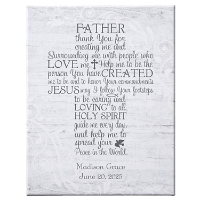 FATHER
thank You for
creating me and
Surrounding me with people who
LOVE me Help me to be the
person You have CREATED
me to be and to honor Your commandments
JESUS may I follow Your footsteps
to be caring and
LOVING to all.
HOLY SPIRIT
guide me every day
and help me to
spread your
Peace in the World.
Madison Grace
June 20, 2025